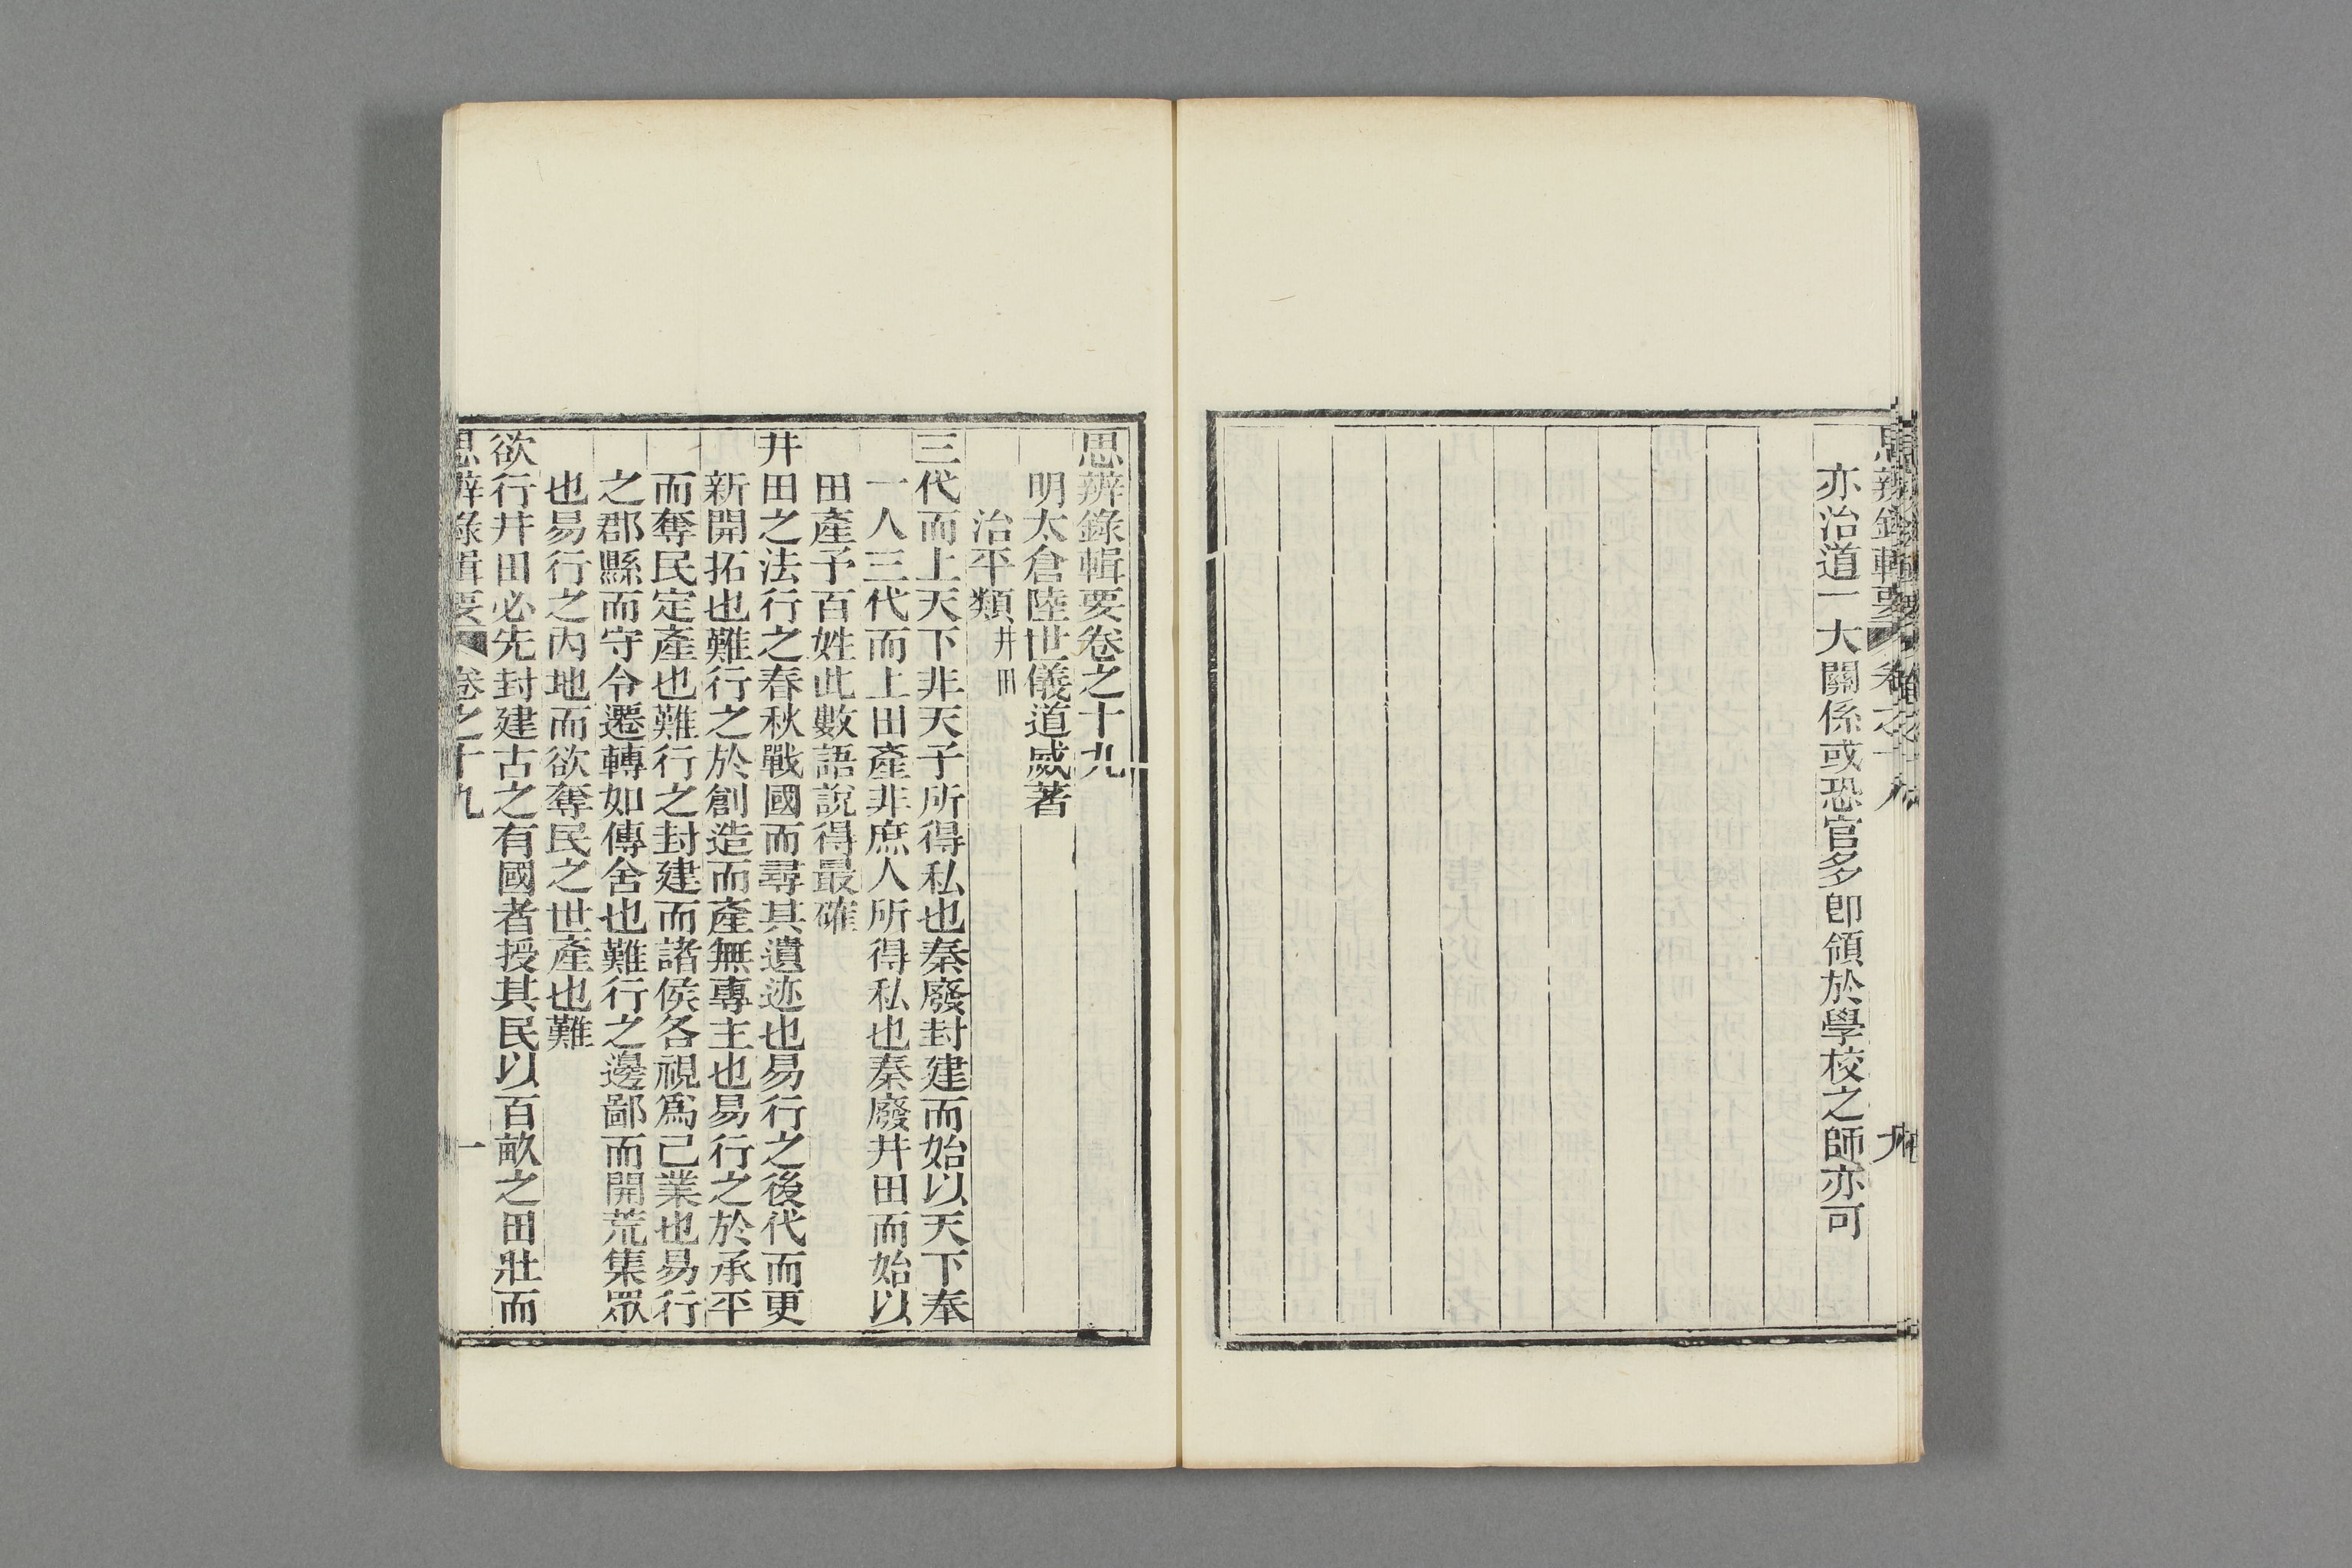 思辨錄輯要 卷之十八 九
亦治道一大關係或恐官多卽領於學校之師亦可
思辨錄輯要卷之十九
明太倉陸世儀道威著
治平類井田
三代而上天下非天子所得私也秦廢封建而始以天下奉
一人三代而上田產非庶人所得私也秦廢井田而始以
田產予百姓此數語說得最確
井田之法行之春秋戰國而尋其遺迹也易行之後代而更
新開拓也難行之於創造而產無專主也易行之於承平
而奪民定產也難行之封建而諸侯各視爲己業也易行
之郡縣而守令遷轉如傳舍也難行之邊鄙而開荒集眾
也易行之內地而欲奪民之世產也難
欲行井田必先封建古之有國者授其民以百畝之田壯而
思辨錄輯要 卷之十九 一